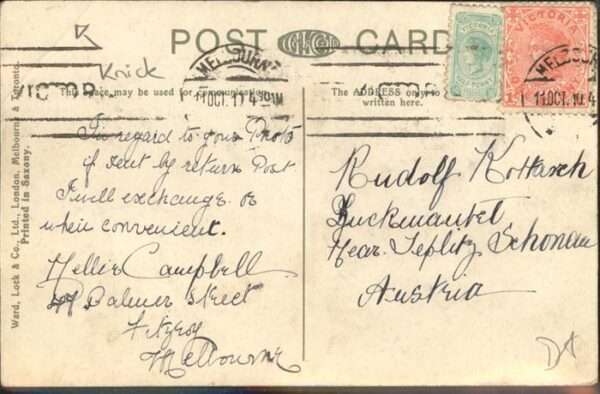 POST CARD
Knick
This space may be used for communication.
The ADDRESS only to
written here.
MELBOURNE
11 OCT. 11 4
MELBOURNE
11 OCT. 10 4
VICTOR
VICTORIA
VICTORIA
Ward, Lock & Co., Ltd., London, Melbourne & Toronto.
Printed in Saxony.
In regard to your Photo
if sent by return Post
I will exchange or
when convenient.
Nellie Campbell
Palmer Street
Fitzroy
Melbourne
Rudolf Kottasch
Zuckmantel
Near Teplitz Schonau
Austria